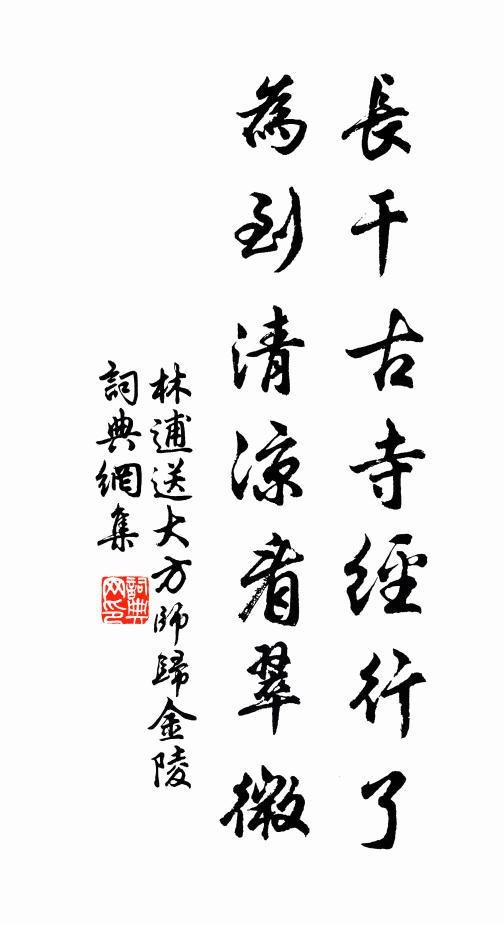 長干古寺經行了
為到清涼看翠微
林逋送大方師歸金陵
詞典網集
詞典網印